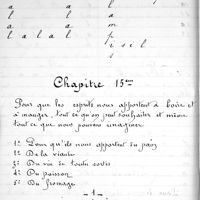 a a a
a l a
l a m
l a l a l p
r s i l
l
s
Chapitre 15me
Pour que les esprits nous apportent à boire et
à manger, tout ce qu'on peut souhaiter et même
tout ce que nous pouvons imaginer
1° Pour qu'ils nous apportent du pain
2° De la viande
3° Du vin de toute sorte
4° Du poisson
5° Du fromage
- 1 -